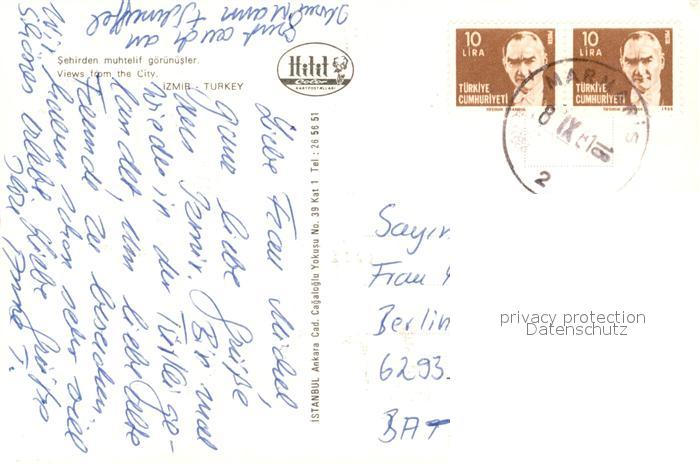 Şehirden muhtelif görünüşler.
Views from the City.
İZMİR - TURKEY
Hitit
Color
KARTPOSTALLARI
İSTANBUL Ankara Cad. Cağaloğlu Yokuşu No. 39 Kat 1 Tel : 26 56 51
10
LIRA
POSTA
TÜRKİYE
CUMHURİYETİ
10
LIRA
POSTA
TÜRKİYE
CUMHURİYETİ
MARMARİS
8 IX
2
Liebe Frau Michel,
ganz liebe Grüße
aus Izmir. Bin mal
wieder in der Türkei ge-
landet, um liebe alte
Freunde zu besuchen.
Wir haben schon sehr viel
Schönes erlebt. Liebe Grüße
Ihre
T.
Gruß auch an
Mann
Sayın
Frau
Berlin
6293
privacy protection
Datenschutz